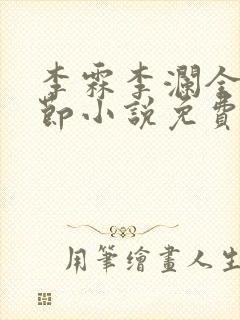 李霖李瀾全
節小說免費
用筆繪畫人生